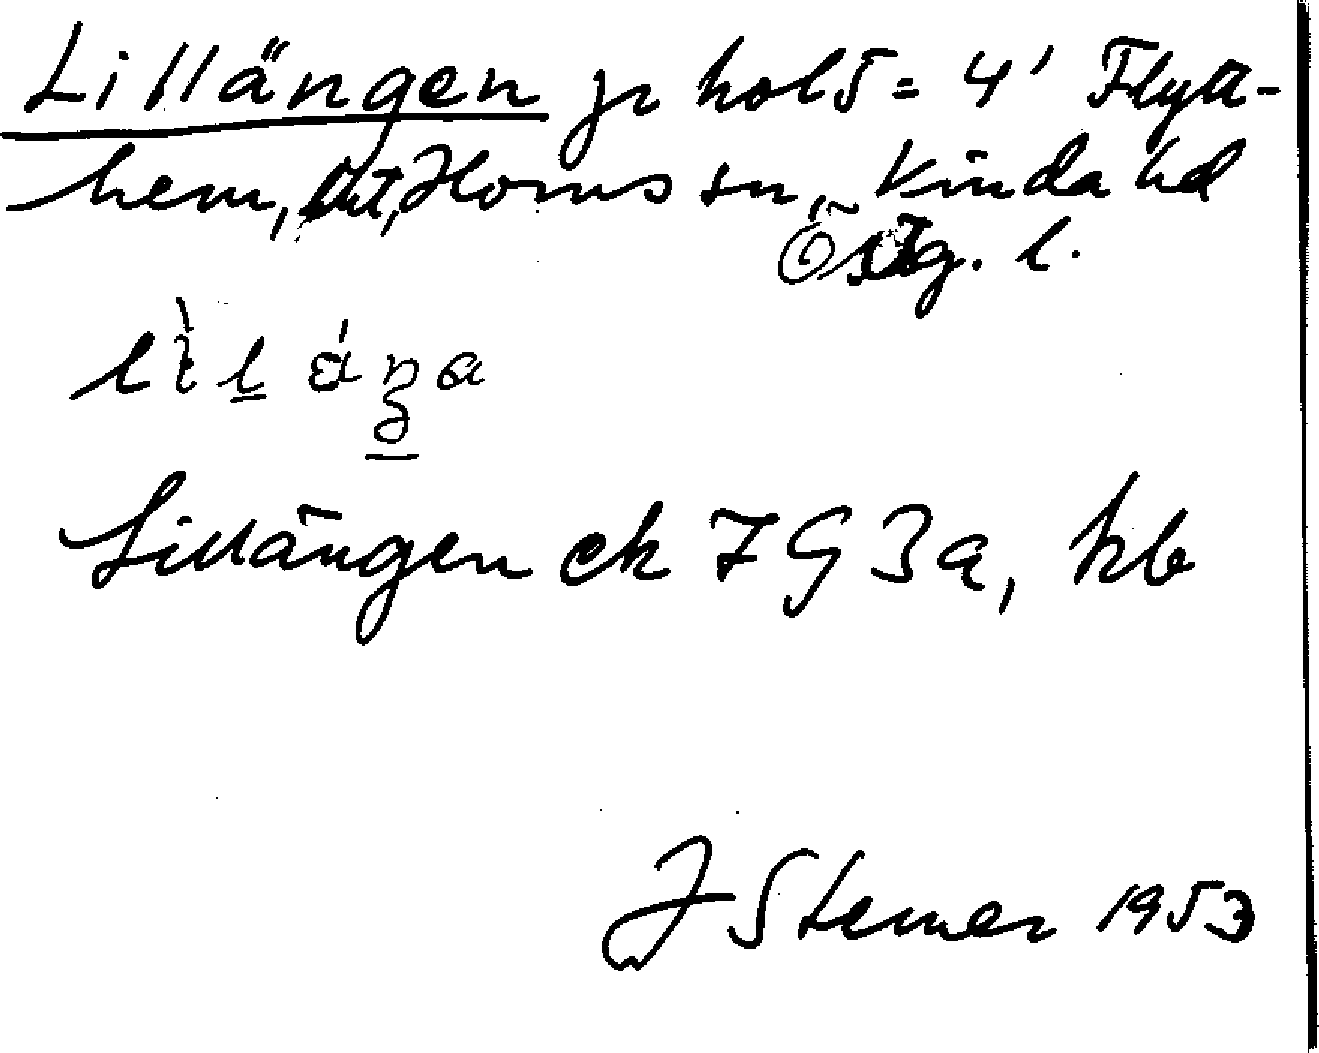 Lillängen jr hol 5 = 4' Flytt-
hem, Horns sn, Kinda hd
Östg. l.
Lillängen ek 7G3a, kb
J Stemer 1953